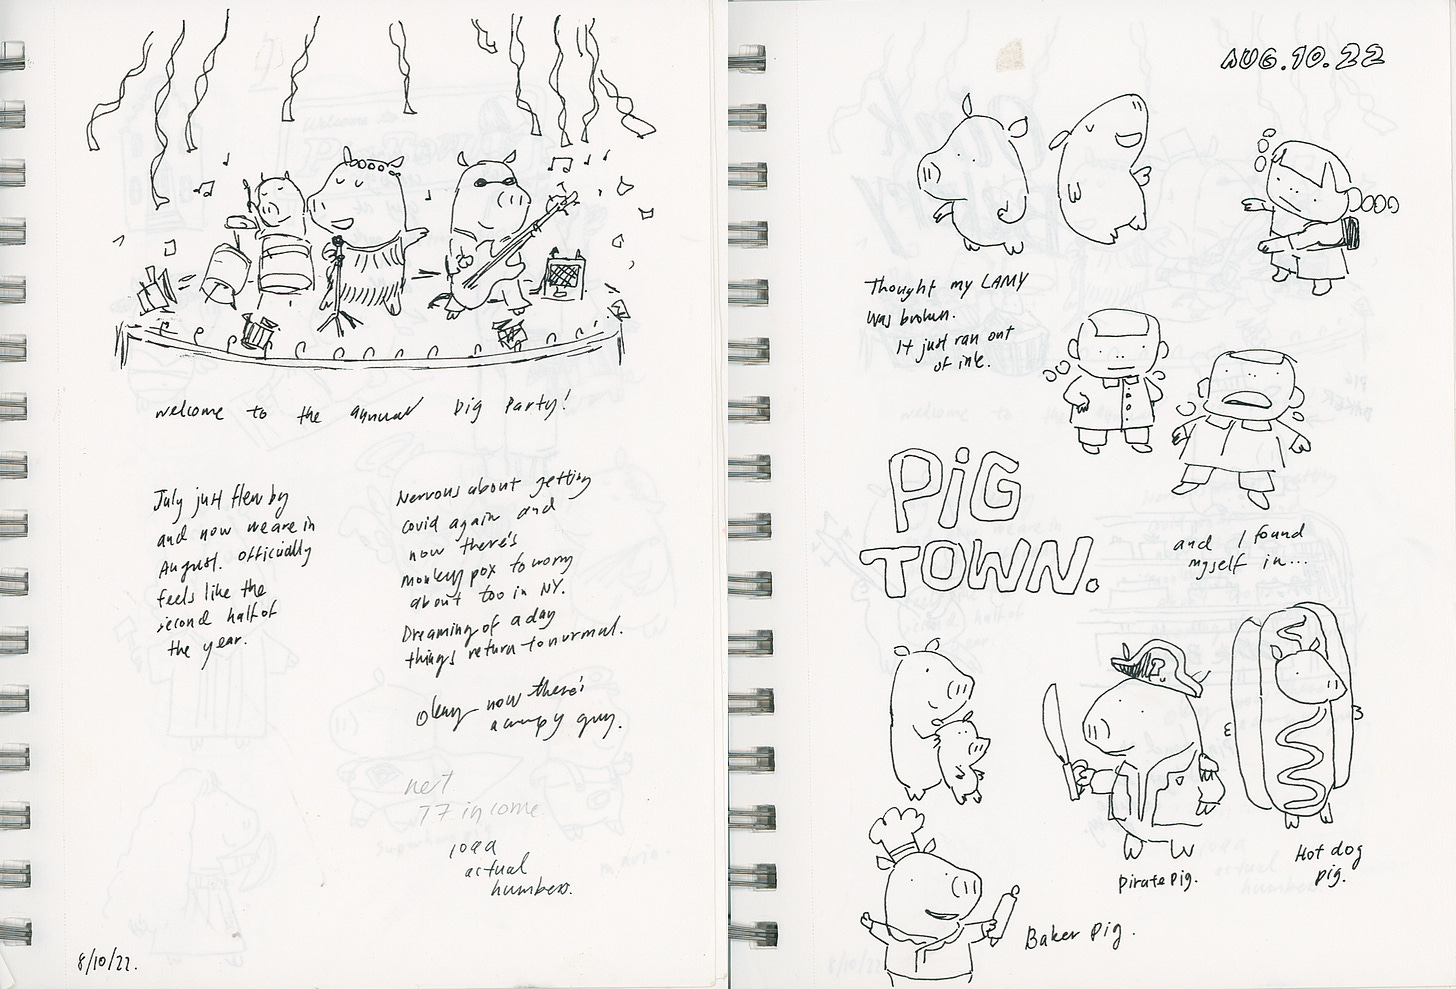 welcome to the annual pig party!
July just flew by
and now we are in
August. officially
feels like the
second half of
the year.
Nervous about getting
covid again and
now there's
monkey pox to worry
about too in NY.
Dreaming of a day
things return to normal.
okay now there's
a grumpy guy.
net
77 income
1099
actual
numbers.
8/10/22.
AUG.10.22
Thought my LAMY
was broken.
It just ran out
of ink.
and I found
myself in...
PIG
TOWN.
Pirate pig.
Hot dog
pig.
Baker pig.